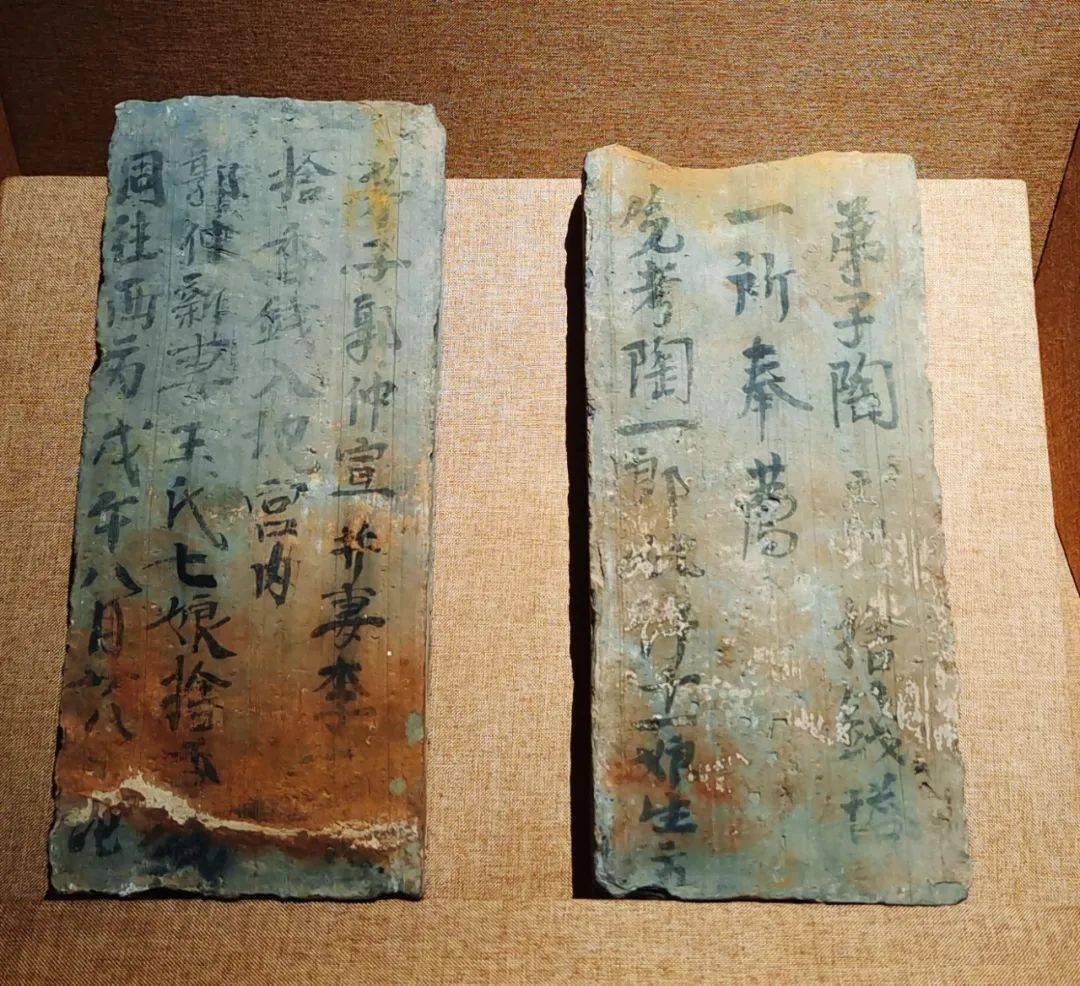 弟子郭仲宣并妻李
捨香錢入地宮内
郭仲新妻王氏七娘捨
同往西方戊午八月廿八
弟子陶 捨錢塔
一所奉薦
先考陶一郎 十娘生天